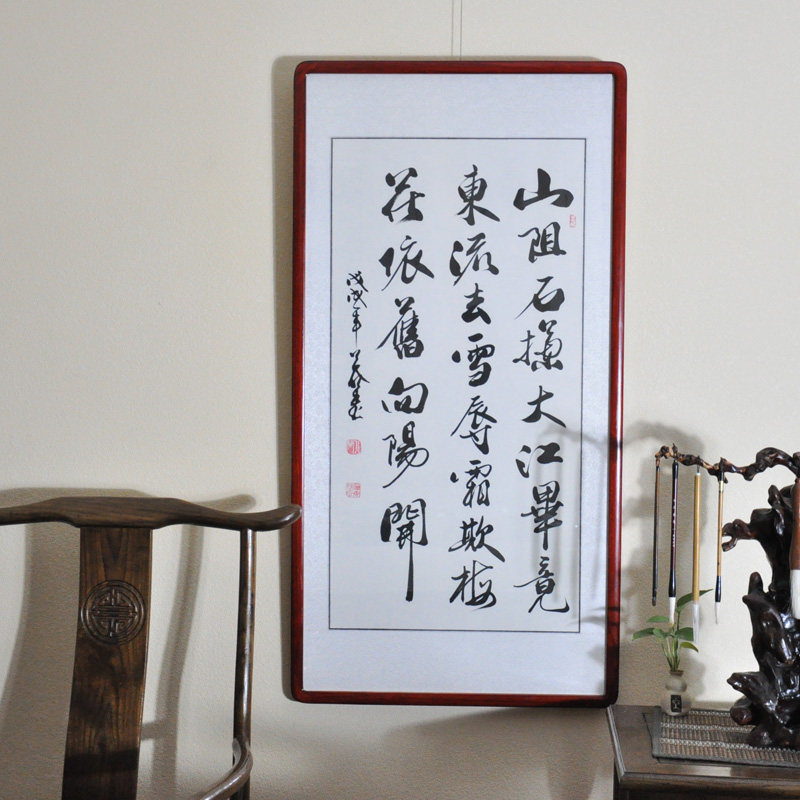 山阻石攔大江畢竟
東流去雪辱霜欺梅
花依舊向陽開
戊戌年